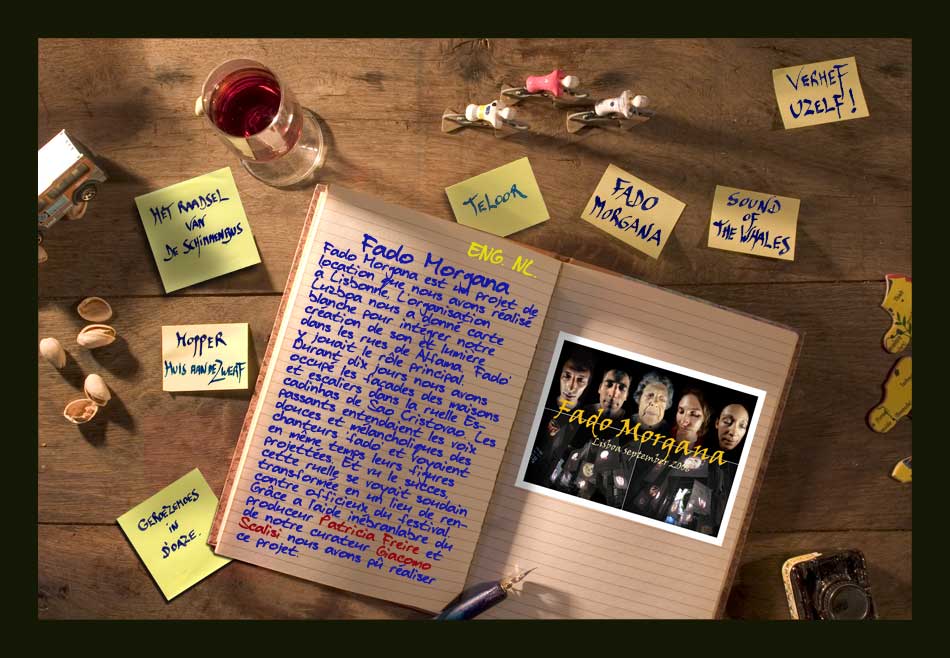 VERHEF
UZELF!
HET RAADSEL
VAN
DE SCHIMMENBUS
TELOOR
FADO
MORGANA
SOUND
OF
THE WHALES
HOPPER
HUIS AAN DE ZWERF
GEROEZEMOES
IN
D'OAZE.
ENG NL.
Fado Morgana
Fado Morgana est un projet de
location que nous avons réalisé
a Lisbonne. L'organisation
Luzboa nous a donné carte
blanche pour intégrer notre
création de son et lumière
dans les rues de Alfama. 'Fado'
y jouait le rôle principal.
Durant dix jours nous avons
occupé les façades des maisons
et escaliers dans la ruelle Es-
cadinhas de Sao Cristovao. Les
passants entendaient les voix
douces et mélancholiques des
chanteurs fado, et voyaient
en même temps leurs figures
projettées. Et vu le succes,
cette ruelle se voyait soudain
transformée en un lieu de ren-
contre officieux du festival.
Grâce a l'aide inébranlabre du
producteur Patricia Freire et
de notre curateur Giacomo
Scalisi nous avons pu réaliser
ce projet.
Fado Morgana
Lisboa september